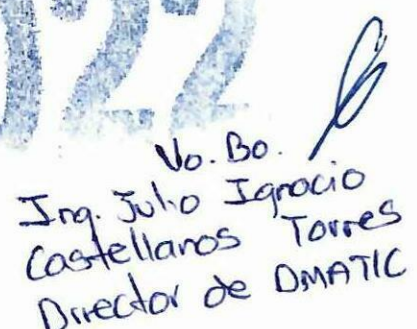 022
Vo. Bo.
Ing. Julio Ignacio
Castellanos Torres
Director de DMATIC